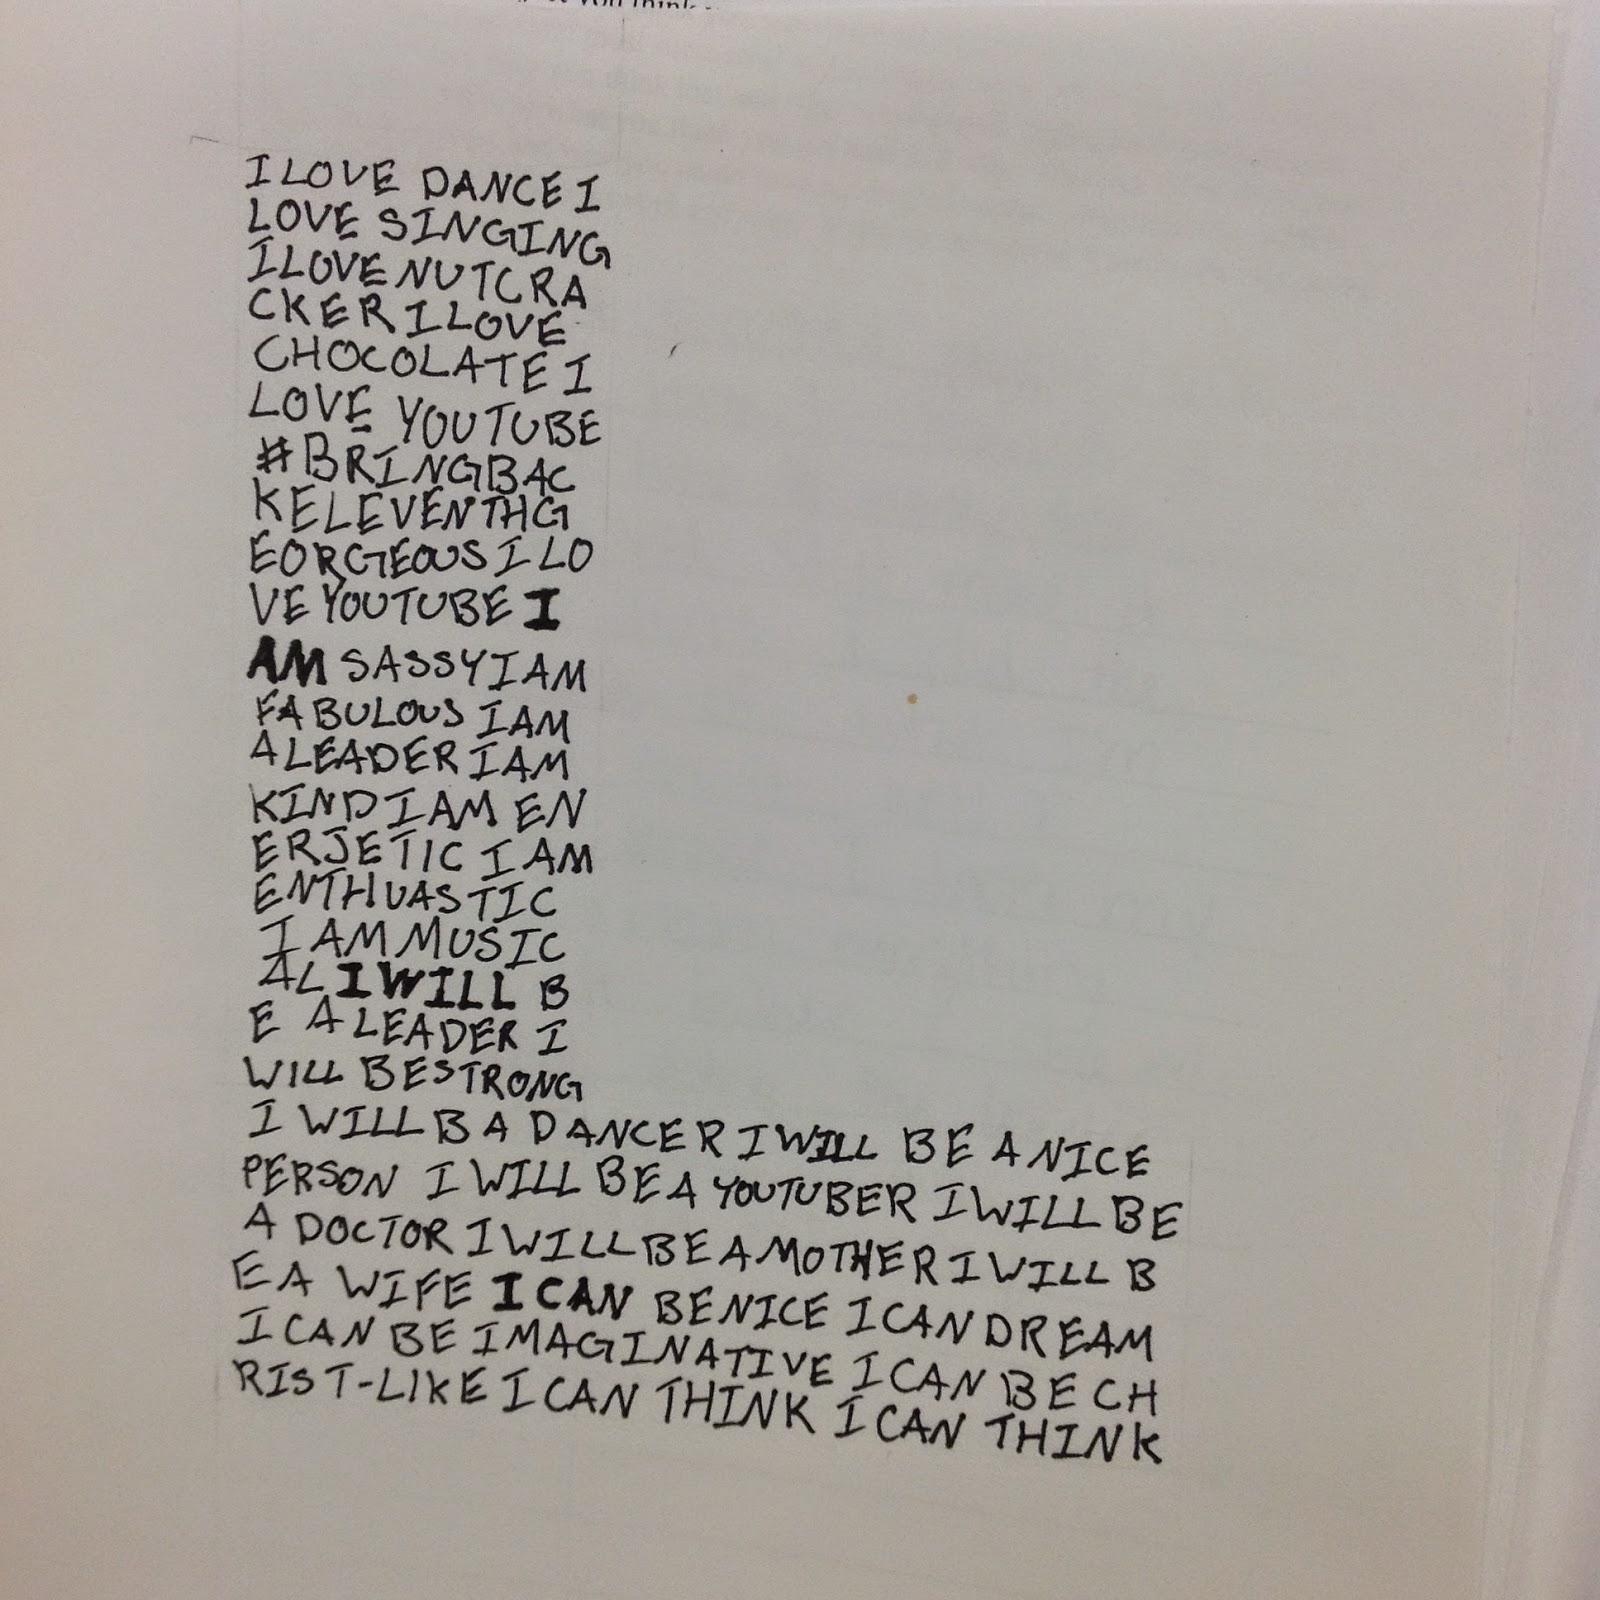 I LOVE DANCE I
LOVE SINGING
I LOVE NUTCRA
CKER I LOVE
CHOCOLATE I
LOVE YOUTUBE
#BRINGBAC
KELEVENTHG
EORGEOUS I LO
VE YOUTUBE I
AM SASSY I AM
FABULOUS I AM
A LEADER I AM
KIND I AM EN
ERJETIC I AM
ENTHUASTIC
I AM MUSIC
AL I WILL B
E A LEADER I
WILL BE STRONG
I WILL B A DANCER I WILL BE A NICE
PERSON I WILL BE A YOUTUBER I WILL BE
A DOCTOR I WILL BE A MOTHER I WILL B
E A WIFE I CAN BE NICE I CAN DREAM
I CAN BE IMAGINATIVE I CAN BE CH
RIST-LIKE I CAN THINK I CAN THINK